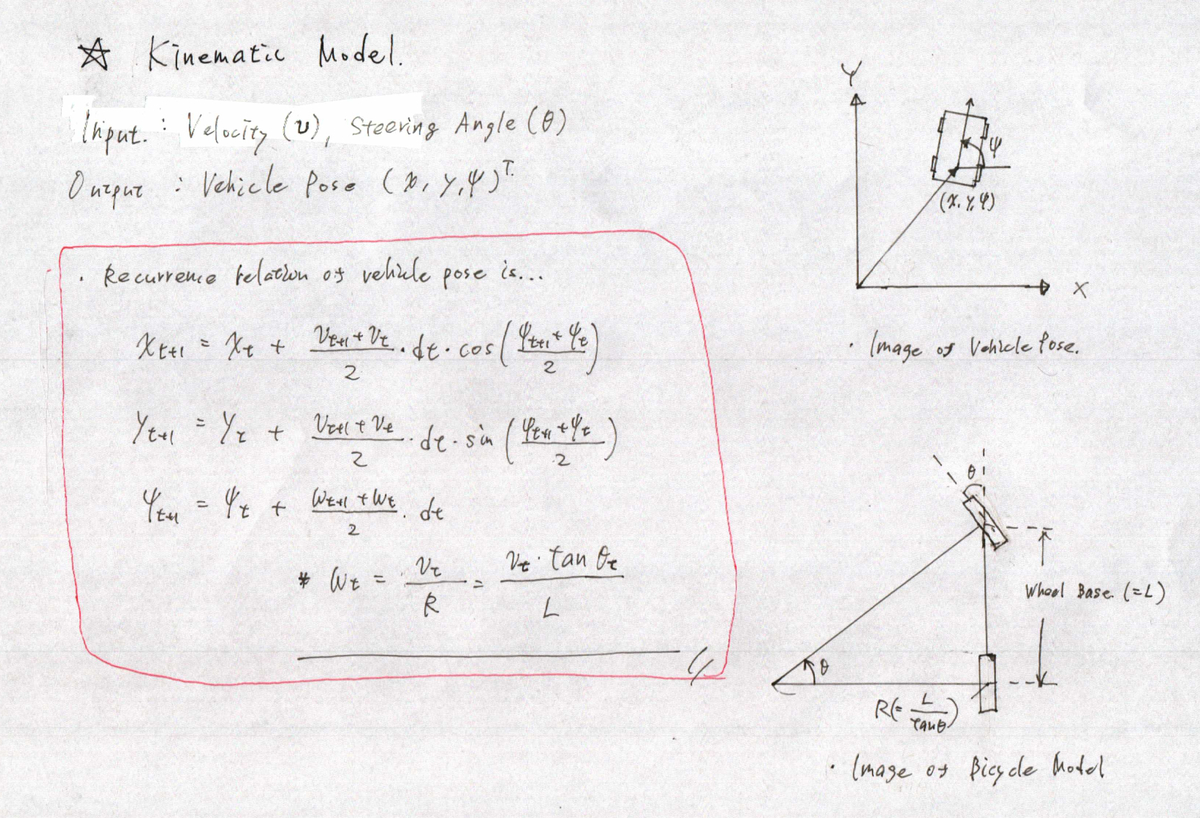 ☆ Kinematic Model.
Input. : Velocity (v), Steering Angle (θ)
Output : Vehicle Pose (x, y, ψ)ᵀ
· Recurrence relation of vehicle pose is...
x_{t+1} = x_t + (v_{t+1} + v_t)/2 · dt · cos((ψ_{t+1} + ψ_t)/2)
y_{t+1} = y_t + (v_{t+1} + v_t)/2 · dt · sin((ψ_{t+1} + ψ_t)/2)
ψ_{t+1} = ψ_t + (ω_{t+1} + ω_t)/2 · dt
* ω_t = v_t/R = (v_t · tan θ_t)/L
Y
ψ
(x, y, ψ)
X
· Image of Vehicle Pose.
θ
Wheel Base (=L)
θ
R(= L/tanθ)
· Image of Bicycle Model